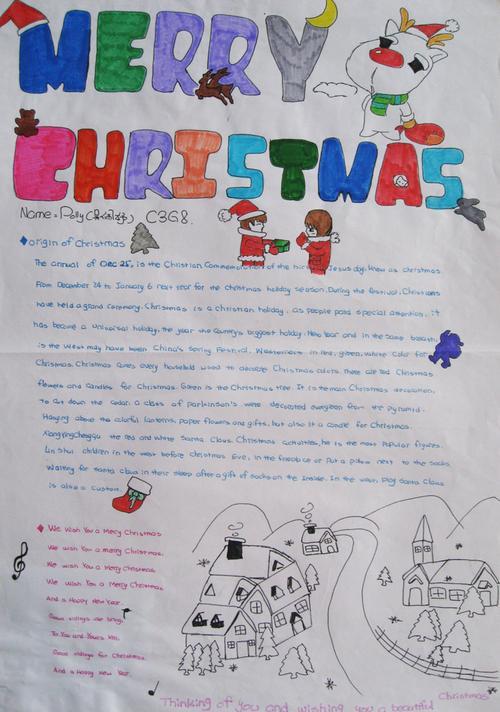 MERRY
CHRISTMAS
Name: Polly C3G8.
origin of Christmas
The annual of DEC 25, is the Christian Commemoration of the birth Jesus day. Known as christmas
From December 24 to January 6 next year for the christmas holiday season. During the festival, Christians
have held a grand ceremony. Christmas is a christian holiday, as people paid special attention, it
has become a universal holiday, the year the country's biggest holiday. New Year and in the same breath
is the West may have been China's Spring Festival. Westerners in red, green, white Color for
Christmas. Christmas Comes every household used to decorate Christmas colors. There are red Christmas
flowers and candles for Christmas. Green is the Christmas tree. It is the main Christmas decoration,
to cut down the cedar, a class of parkinson's were decorated evergreen from the pyramid.
Hanging above the colorful lanterns, paper flowers and gifts, but also lit a candle for Christmas.
the red and white Santa Claus. Christmas activities, he is the most popular figures.
children in the west before christmas Eve, in the fireplace or Put a pillow next to the socks
Waiting for santa claus in their sleep after a gift of socks on the inside. In the west, Play Santa Claus
is also a custom.
We Wish You a Merry Christmas
We wish You a merry christmas.
We wish You a Merry Christmas
We wish You a Merry Christmas
And a Happy New Year.
Good tidings we bring
To You and Yours kin.
Good tidings for Christmas
And a Happy New Year
Thinking of you and wishing you a beautiful Christmas